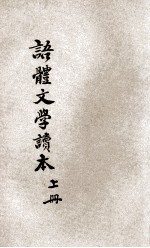 語體文學讀本上冊